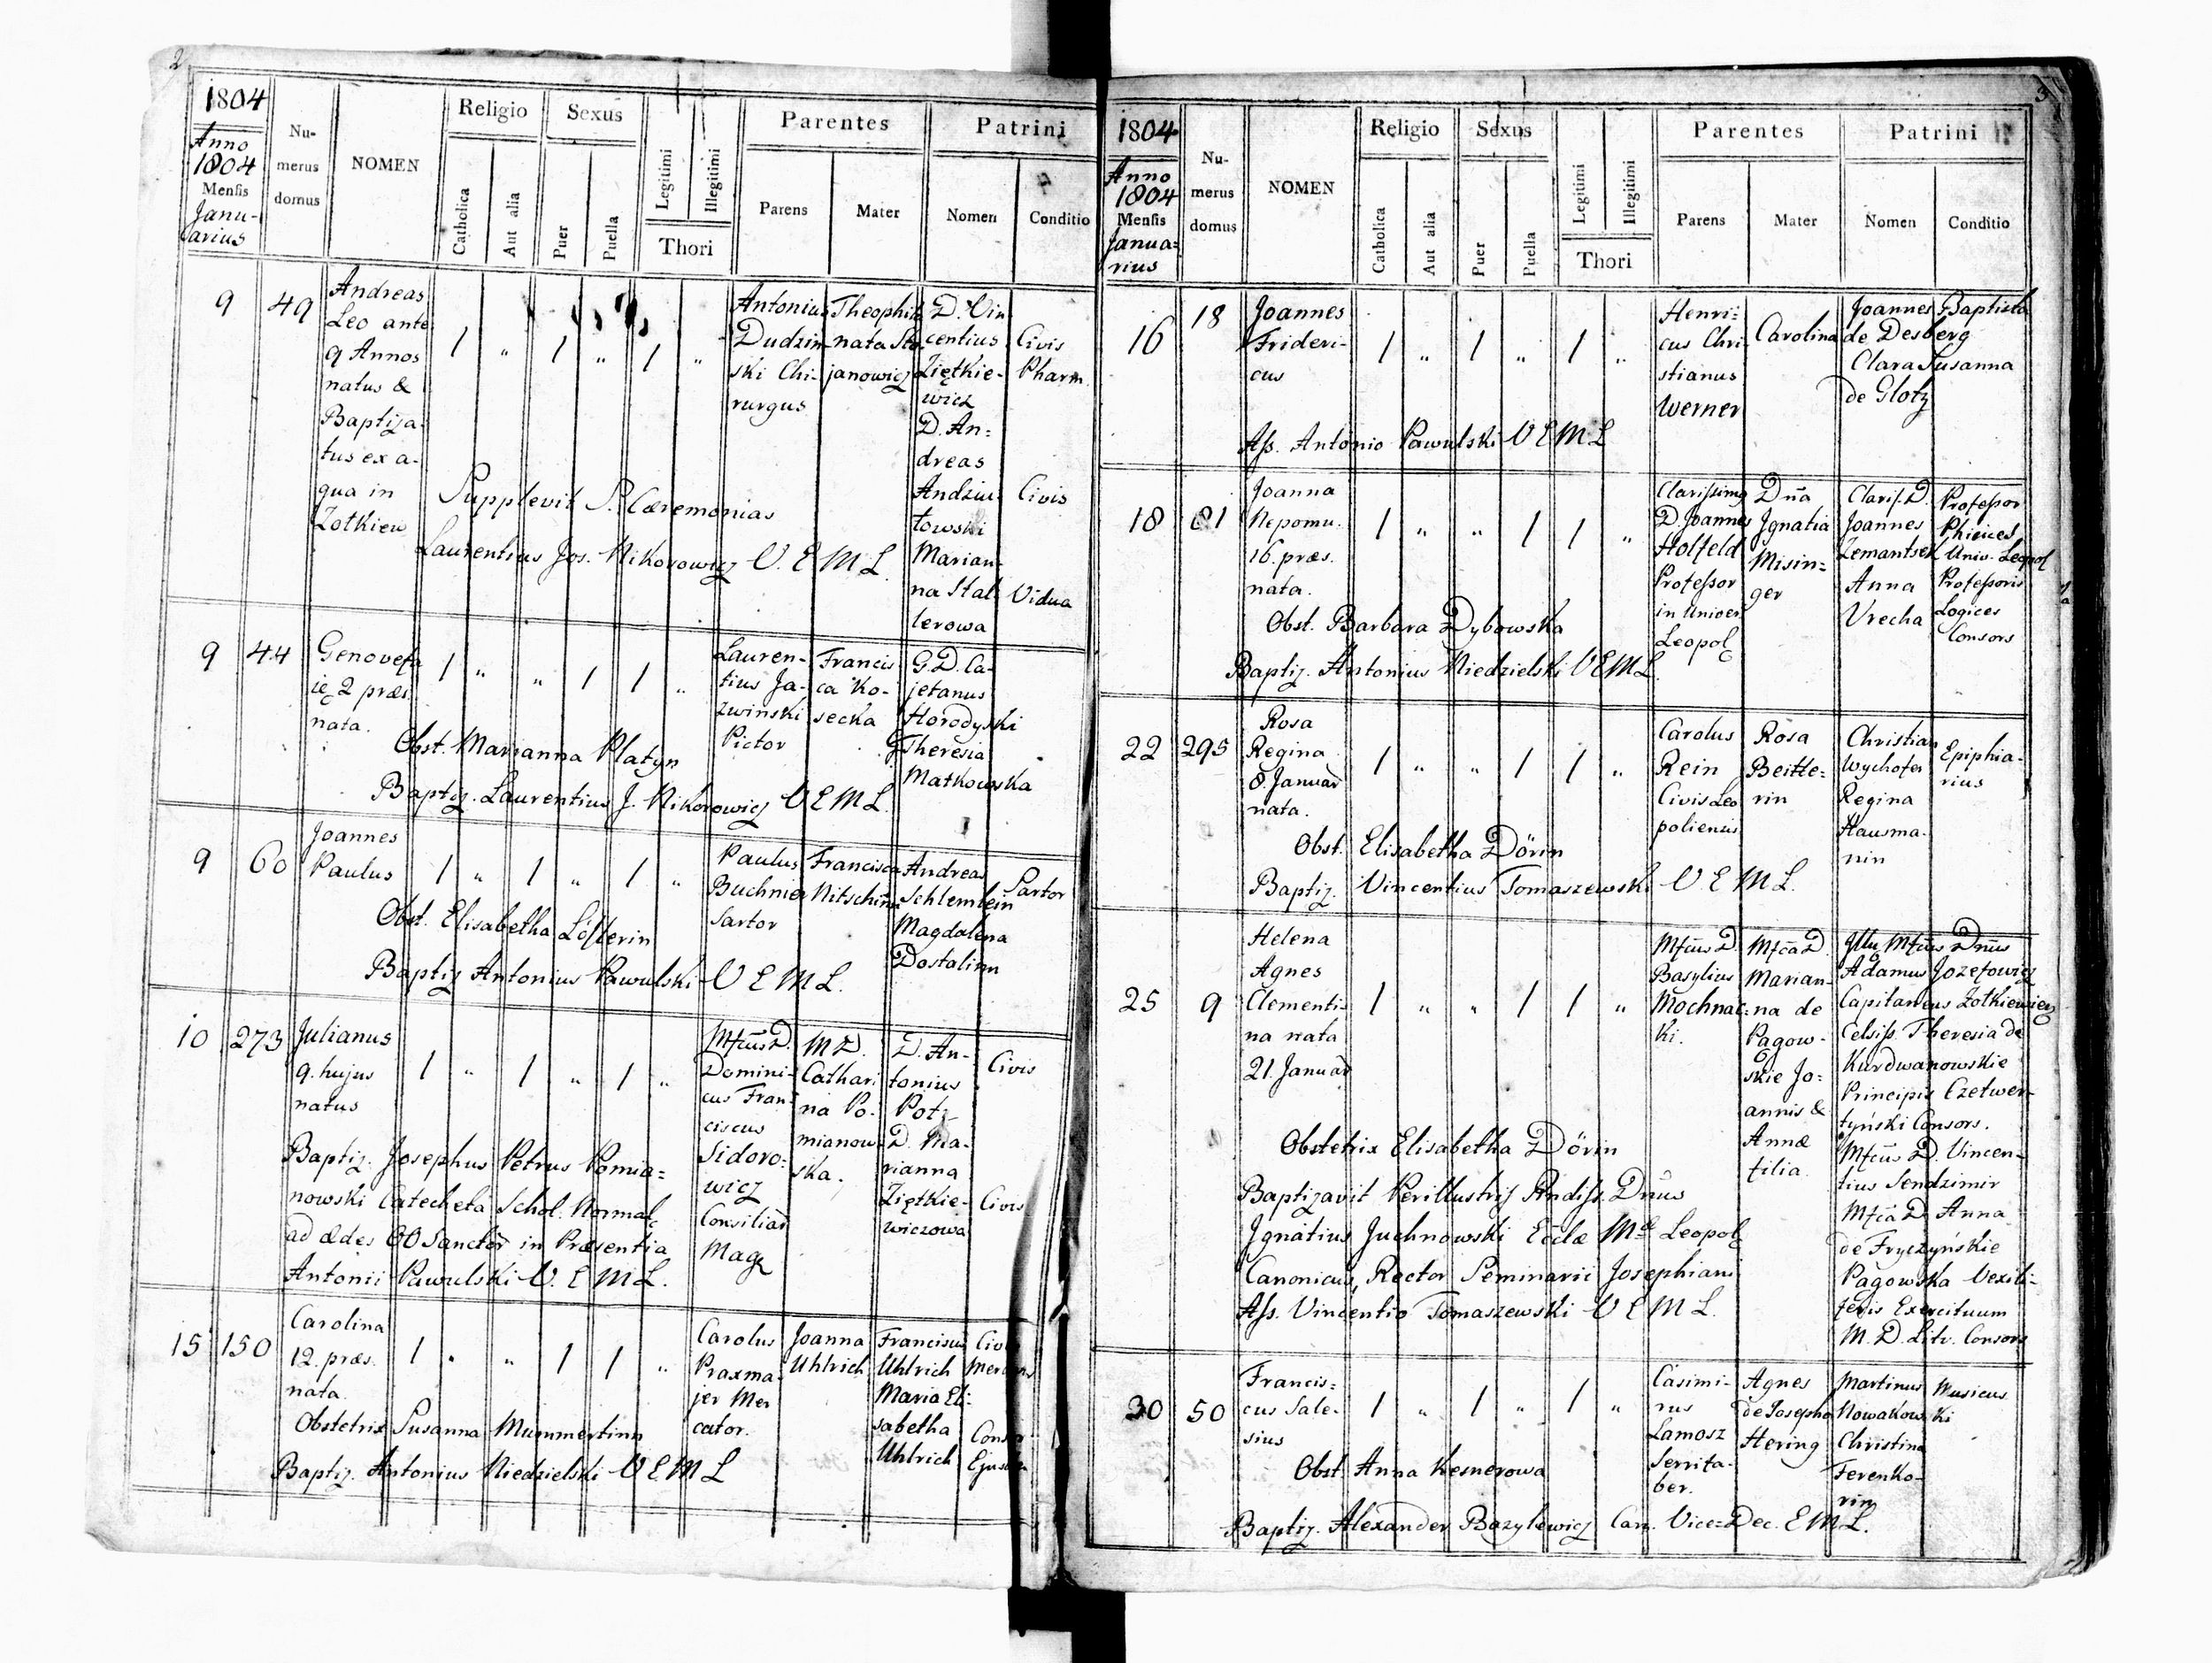 2
1804
Anno
1804
Mensis
Janu-
arius
Nu-
merus
domus
NOMEN
Religio
Catholica
Aut alia
Sexus
Puer
Puella
Legitimi
Illegitimi
Thori
Parentes
Parens
Mater
Patrini
Nomen
Conditio
9
49
Andreas
Leo ante
9 Annos
natus &
Baptiza-
tus ex a-
qua in
Zotkiew
1 " 1 " 1 "
Antonius
Dudzin-
ski Chi-
rurgus
Theophila
nata Sto-
janowicz
D. Vin
centius
Ziętkie-
wicz
D. An=
dreas
Andziu-
towski
Marian-
na Stal-
lerowa
Civis
Pharm.
Civis
Vidua
Supplevit S. Cæremonias
Laurentius Jos. Nikorowicz V. E M L.
9
44
Genovefa
2 præs.
nata.
1 " " 1 1 "
Lauren-
tius Ja-
zwinski
Pictor
Francis
ca Ko-
secka
G. D. Ca-
jetanus
Horodyski
Theresia
Matkowska
Obst. Marianna Platyn
Baptiz. Laurentius J. Nikorowicz V E M L.
9
60
Joannes
Paulus
1 " 1 " 1 "
Paulus
Buchnier
Sartor
Francisca
Nitschin
Andreas
Schlemlein
Magdalena
Dostalinn
Sartor
Obst. Elisabetha Löflerin
Baptiz Antonius Pawulski V E M L.
10
273
Julianus
9. hujus
natus
1 " 1 " 1 "
Mfcus D.
Domini-
cus Fran-
ciscus
Sidoro-
wicz
Consiliar
Mag
M D.
Cathari
na Po-
mianow-
ska.
D. An-
tonius
Potz
D. Ma-
rianna
Ziętkie-
wiczowa
Civis
Civis
Baptiz. Josephus Petrus Pomia=
nowski Catecheta Schol. Normal
ad ædes OO Sanctor in Præsentia
Antonii Pawulski V. E M L.
15
150
Carolina
12. præs.
nata.
1 " " 1 1 "
Carolus
Praxma-
jer Mer
cator.
Joanna
Uhlrich
Franciscus
Uhlrich
Maria Eli-
sabetha
Uhlrich
Obstetrix Susanna Mummertinn
Baptiz. Antonius Niedzielski V E M L
3
1804
Anno
1804
Mensis
Janua=
rius
Nu-
merus
domus
NOMEN
Religio
Catholica
Aut alia
Sexus
Puer
Puella
Legitimi
Illegitimi
Thori
Parentes
Parens
Mater
Patrini
Nomen
Conditio
16
18
Joannes
Frideri-
cus
1 " 1 " 1 "
Henri=
cus Chri
stianus
Werner
Carolina
Joannes Baptista
de Desberg
Clara Susanna
de Glotz
Ass. Antonio Pawulski V E M L
18
81
Joanna
Nepomu.
16. præs.
nata.
1 " " 1 1 "
Clarissimg
D. Joannes
Holfeld
Professor
in Univer
Leopol
Dna
Ignatia
Misin=
ger
Clariss. D.
Joannes
Zemantsek
Anna
Vrecha
Professor
Phisices
Univ. Leopol
Professoris
Logices
Consors
Obst. Barbara Dybowska
Baptiz. Antonius Niedzielski V E M L.
22
295
Rosa
Regina
8. Januar
nata.
1 " " 1 1 "
Carolus
Rein
Civis Leo
poliensis
Rosa
Beitle=
rin
Christian
Wychofer
Regina
Hausma-
nin
Epiphia-
rius
Obst. Elisabetha Dörin
Baptiz. Vincentius Tomaszewski V E M L.
25
9
Helena
Agnes
Clementi-
na nata
21. Januar
1 " " 1 1 "
Mfcus D.
Basylius
Mochnac-
ki.
Mfca D.
Marian-
na de
Pagow-
skie Jo=
annis &
Annæ
filia.
Mfcus Dnus
Adamus Jozefowicz
Capitaneus Zotkiewiens
Celsiss. Theresia de
Kurdwanowskie
Principis Czetwer-
tyński Consors.
Mfcus D. Vincen-
tius Sendzimir
Mfca D. Anna
de Fryczyńskie
Pagowska Vexili-
feris Exercituum
M. D. Litv. Consors
Obstetrix Elisabetha Dörin
Baptizavit Perillustris Rndiss. Dnus
Ignatius Juchnowski Ecclæ M Leopol
Canonicus, Rector Seminarii Josephiani
Ass. Vincentio Tomaszewski V E M L.
30
50
Francis=
cus Sale-
sius
1 " 1 " 1 "
Casimi-
rus
Lamosz
Serrifa-
ber.
Agnes
de Josepho
Hering
Martinus
Nowakowski
Christina
Ferenko-
rin
Musicus
Obst. Anna Kesnerowa
Baptiz. Alexander Bazylewicz Can. Vice-Dec. E M L.